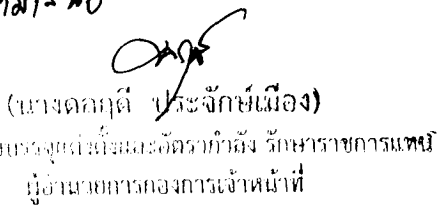 (นางดลฤดี ประจักษ์เมือง)
บรรจุแต่งตั้งและอัตรากำลัง รักษาราชการแทน
ผู้อำนวยการกองการเจ้าหน้าที่